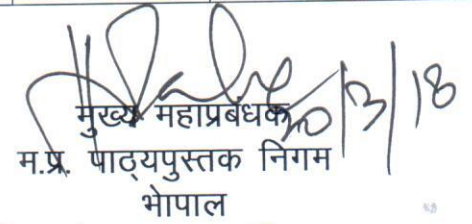 30/3/18
मुख्य महाप्रबंधक
म.प्र. पाठ्यपुस्तक निगम
भोपाल